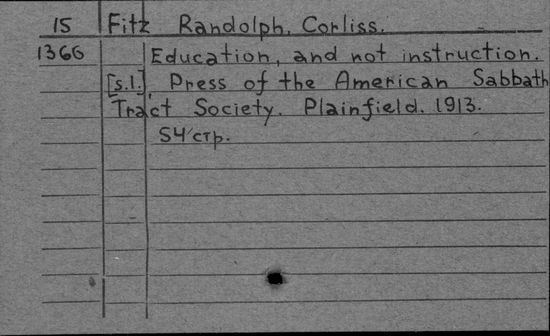 15 Fitz Randolph, Corliss.
1366 Education, and not instruction.
[s.l.], Press of the American Sabbath
Tract Society. Plainfield. 1913.
54 стр.